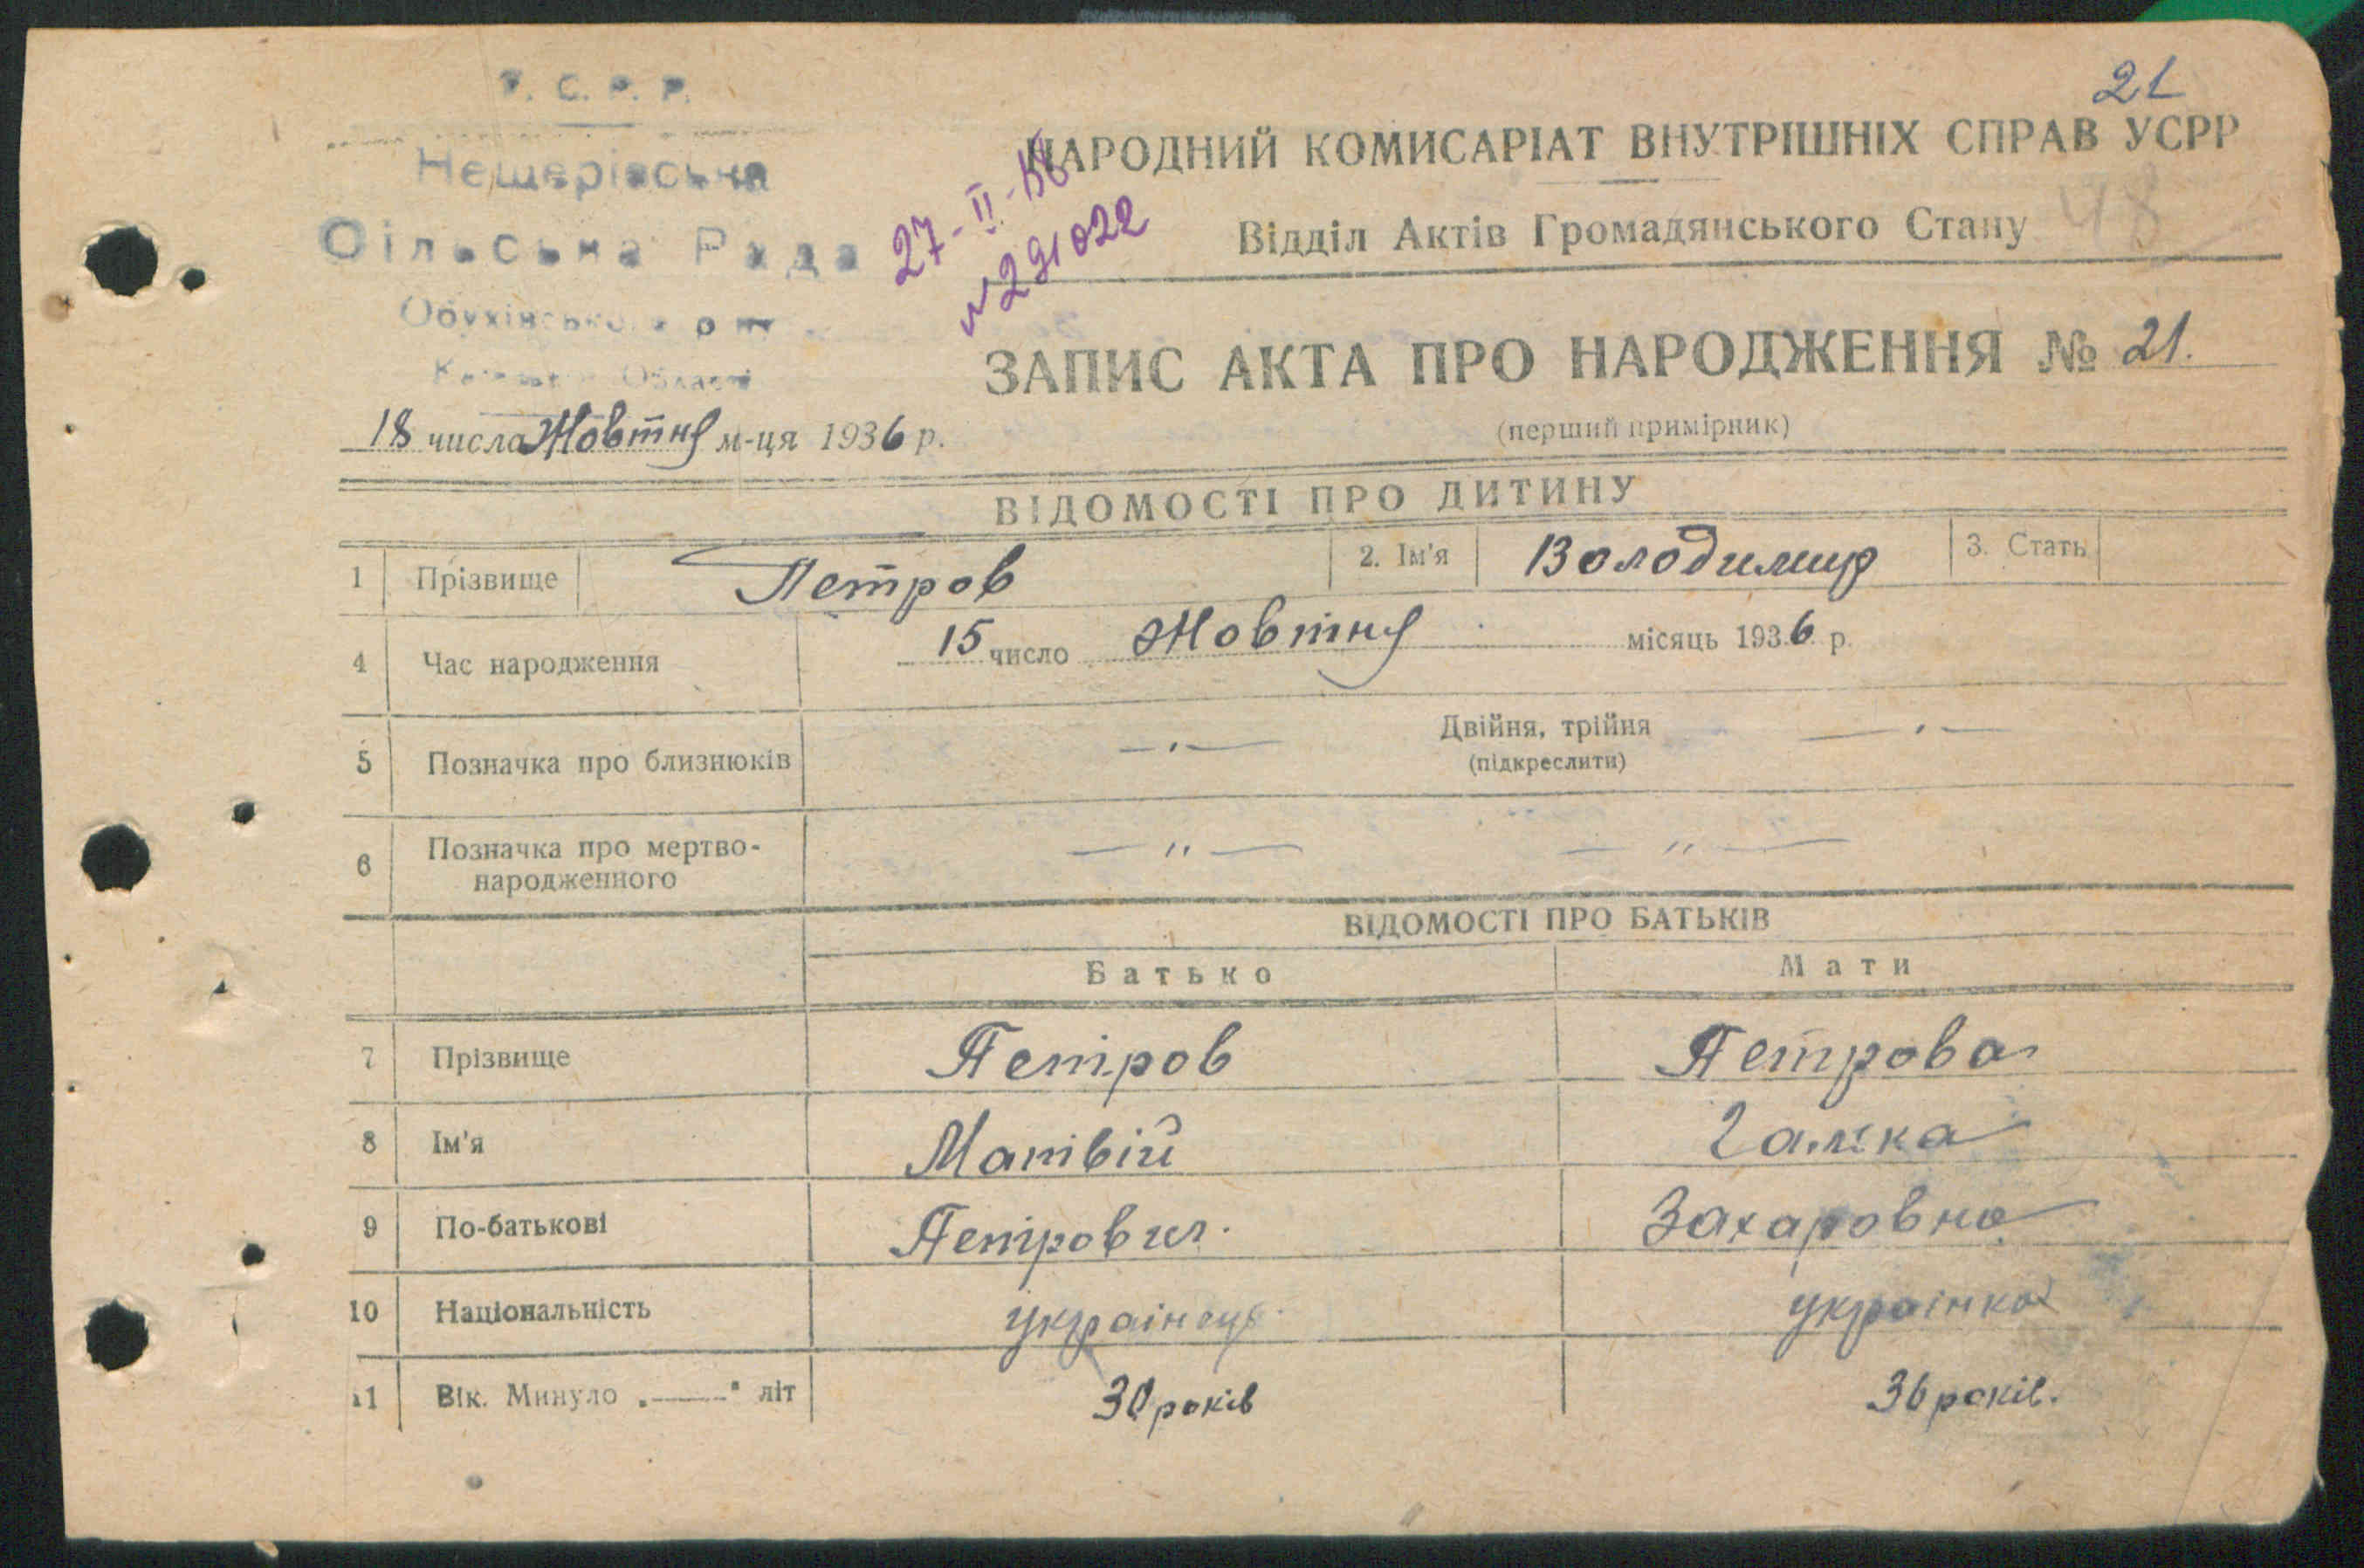 У. С. Р. Р.
Нещерівська
Сільська Рада
Обухівського р-ну
Київської Області
21
НАРОДНИЙ КОМИСАРІАТ ВНУТРІШНІХ СПРАВ УСРР
48
Відділ Актів Громадянського Стану
27-II-
№291022
ЗАПИС АКТА ПРО НАРОДЖЕННЯ № 21.
(перший примірник)
18 числа Жовтня м-ця 1936 р.
ВІДОМОСТІ ПРО ДИТИНУ
1 Прізвище Петров 2. Ім'я Володимир 3. Стать
4 Час народження 15 число Жовтня місяць 1936 р.
5 Позначка про близнюків —"— Двійня, трійня —"—
(підкреслити)
6 Позначка про мертво-
народженного —"— —"—
ВІДОМОСТІ ПРО БАТЬКІВ
Батько Мати
7 Прізвище Петров Петрова
8 Ім'я Матвій Галька
9 По-батькові Петрович. Захаровна
10 Національність українець українка
11 Вік. Минуло „——" літ 30 років 36 років.